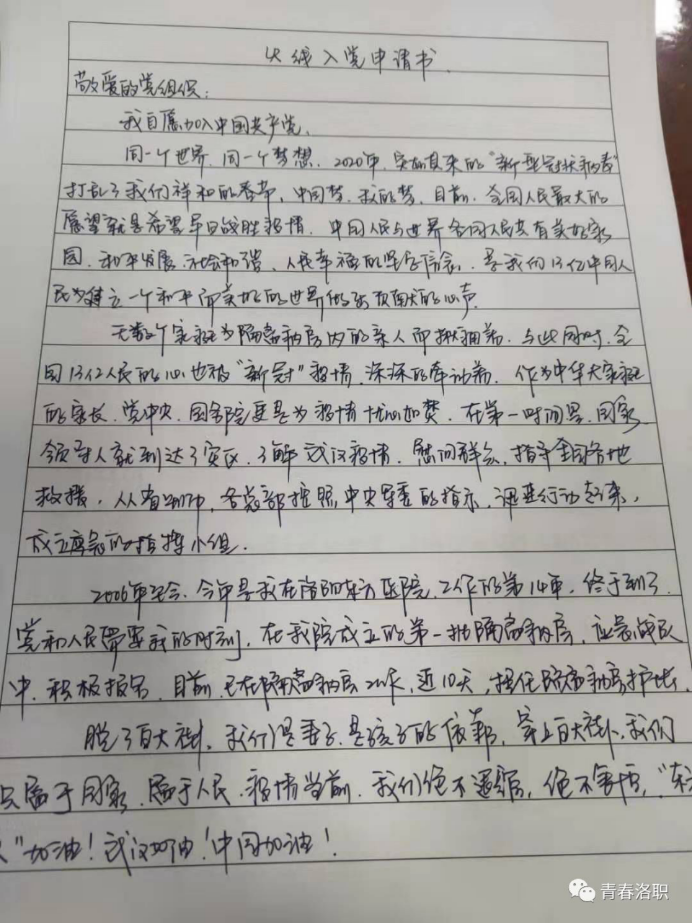 火线入党申请书.
敬爱的党组织:
我自愿加入中国共产党。
同一个世界.同一个梦想.2020年,突如其来的"新型冠状病毒"
打乱了我们祥和的春节,中国梦.我的梦.目前.全国人民最大的
愿望就是希望早日战胜疫情.中国人民与世界各国人民共有美好家
园.和平发展.社会和谐.人民幸福的坚定信念.是我们13亿中国人
民为建立一个和平而美好的世界做的心声
无数个家庭为隔离病房内的亲人而揪着.与此同时,全
国13亿人民的心也被"新冠"疫情.深深的牵动着.作为中华大家庭
的家长.党中央.国务院更是为疫情忧心如焚.在第一时间里.国家
领导人就到达了灾区.了解武汉疫情.慰问群众,指导全国各地
救援,从省到市中,各总部按照中央军委的指示,迅速行动起来,
成立应急的指挥小组.
2006年至今.今年是我在洛阳东方医院.工作的第14年.终于到了
党和人民需要我的时刻,在我院成立的第一批隔离病房,应急战队
中.积极报名.目前.已在隔离病房,近10天,担任隔离病房护士.
脱了白大褂,我们是妻子.是孩子的依靠,穿上白大褂.我们
只属于国家.属于人民.疫情当前.我们绝不退缩,绝不害怕,"东
"加油!武汉加油!中国加油!
青春洛职